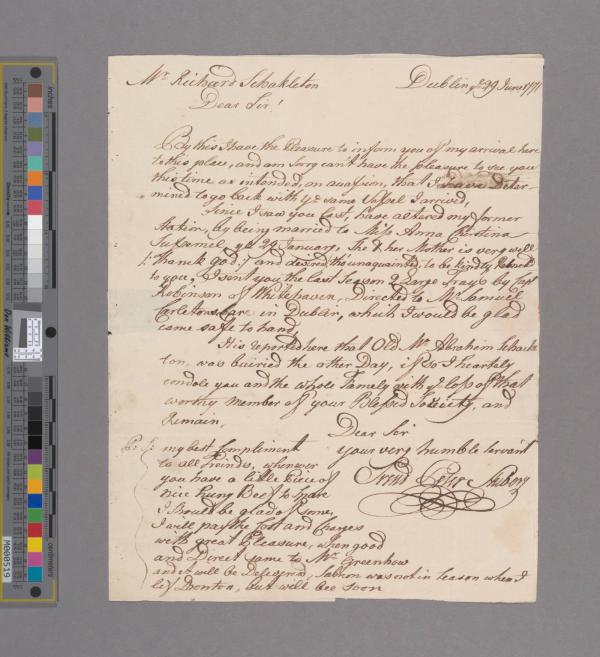 Mr. Richard Schakleton
Dublin ye 29 June 1771
Dear Sir!
By this I have the Pleasure to inform you of my arrival here
to this place, and am sorry can't have the pleasure to see you
this time as intended, on quassion, that I have Deter-
mined to go back with ye same Vessel I arrived,
Since I saw you last, have altered my former
Station, by being married to Miss Anna
ye 24 January, She & her Mother is very well
/: thanck God :/ and desired, tho unaquainted, to be kindly
to you, I sent you the last Season 2 Large Trays by Capt
Robinson of Whitehaven, Directed to Mr Samuel
Carleton Care in Dublin, which I would be glad
came safe to hand,
His reported here that Old Mr Abraham Schackle
ton was buiried the other Day, if so I heartely
condole you and the whole Famely with ye loss of that
worthy member of your Blessed Society, and
Remain,
Dear Sir
your very humble Servant
P: S: my best Compliment
to all Freinds, whenever
you have a little Piece of
nice hung Beef to spare
I should be glad of some,
I will pay the Cost and Charges
with great Pleasure, when good
and Direct same to Mr Greenhow
and it will be Delegered, Salmon was not in Season when I
left Dronton, but will bee soon
inches
centimeters
M000519
Don Williams